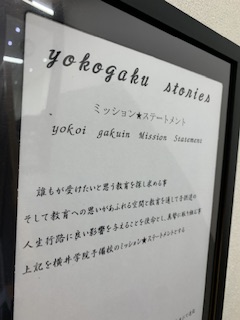 yokogaku stories
ミッション★ステートメント
yokoi gakuin Mission Statement
誰もが受けたいと思う教育を探し求める事
そして教育への思いがあふれる空間と教育を通して子供達の
人生行路に良い影響を与えることを使命とし、真摯に取り組む事
上記を横井学院予備校のミッション★ステートメントとする